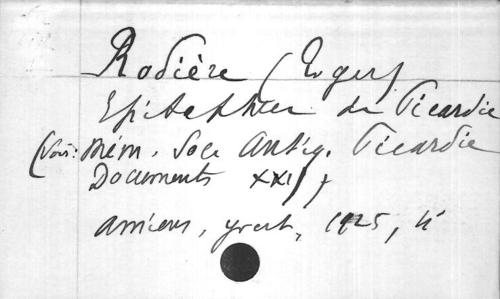 Rodière (Roger)
Epitaphier de Picardie
(Voir: Mém. Soc Antiq. Picardie
Documents XXI)
Amiens, Yvert, 1925, 4°